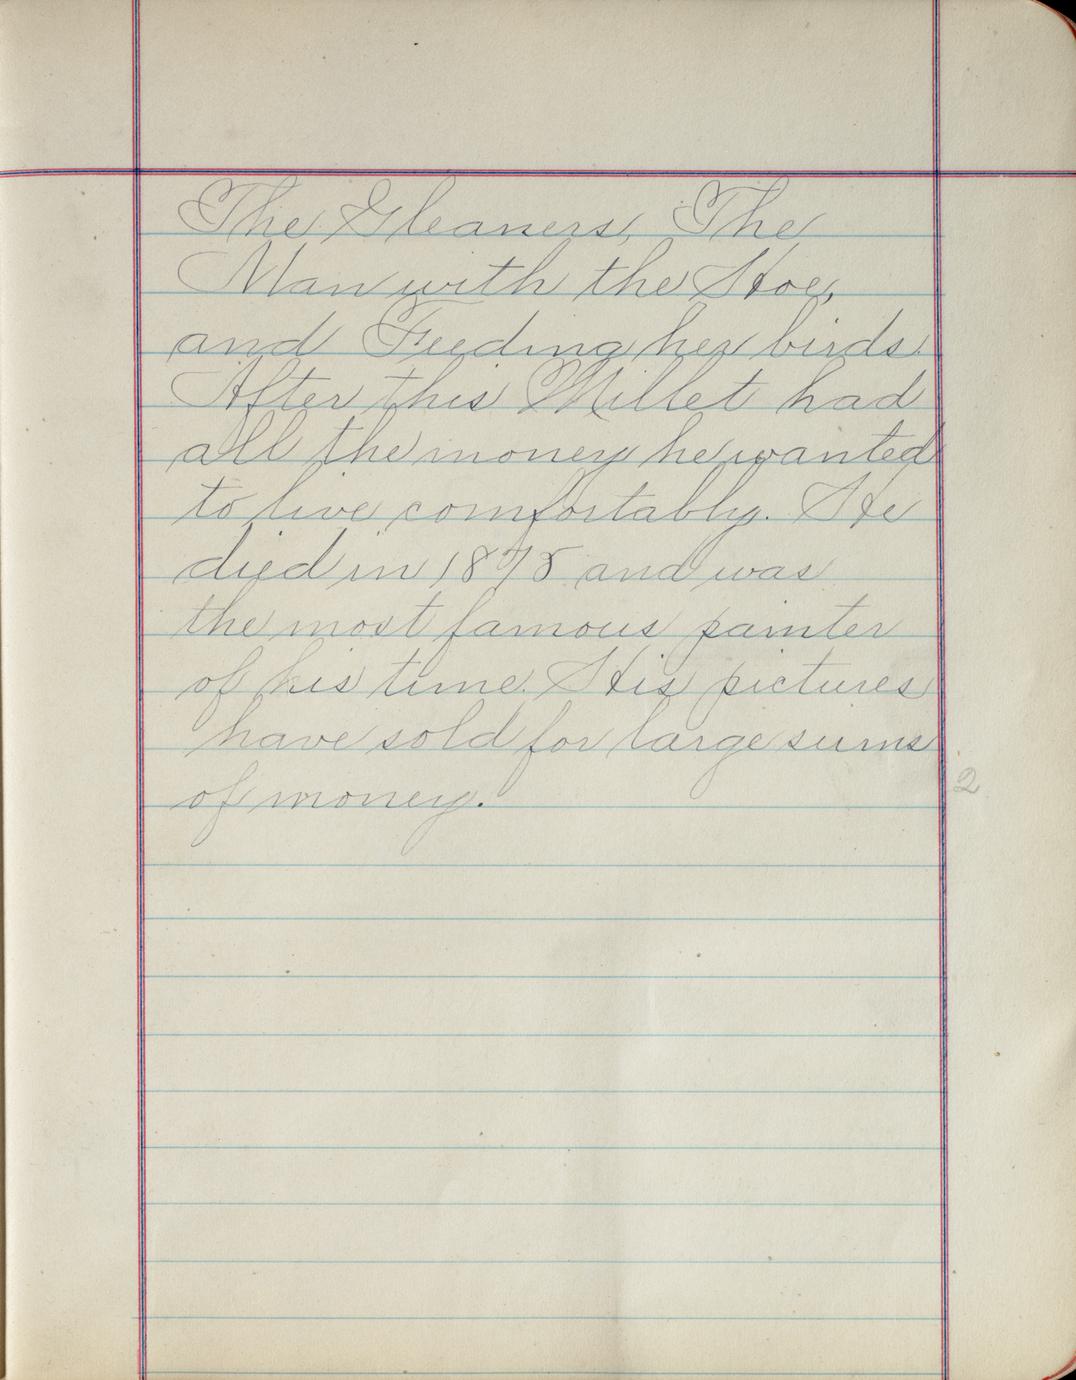 The Gleaners, The
Man with the Hoe,
and Feeding her birds.
After this Millet had
all the money he wanted
to live comfortably. He
died in 1875 and was
the most famous painter
of his time. His pictures
have sold for large sums
of money.
2